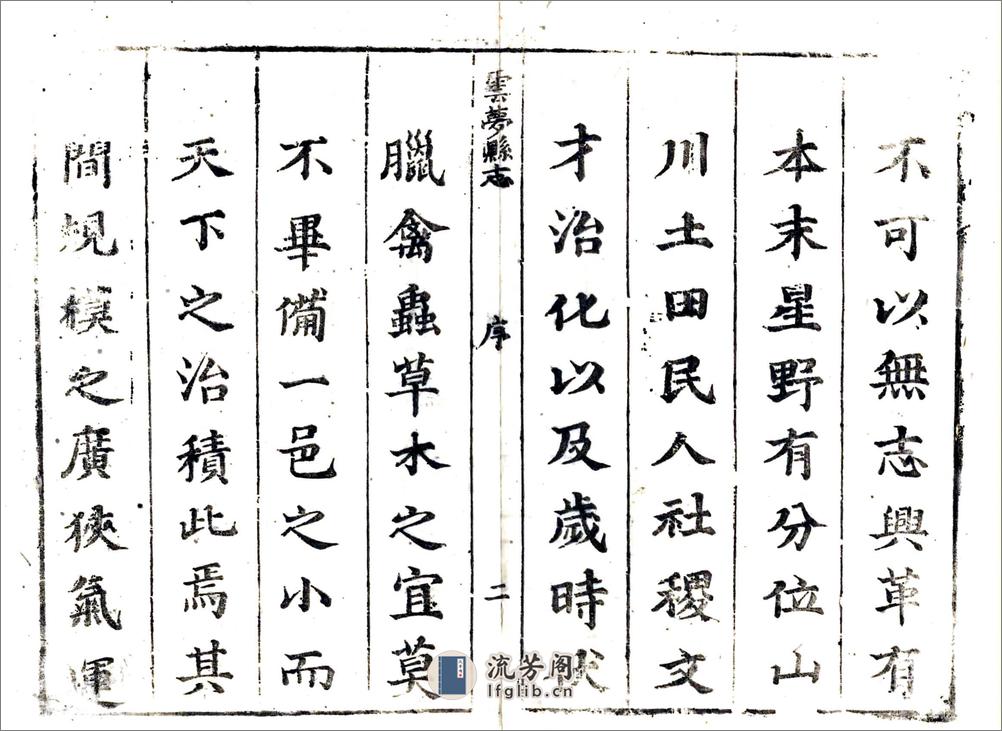 不可以無志興革有
本末星野有分位山
川土田民人社稷文
才治化以及歲時伏
雲夢縣志 序 二
臘禽蟲草木之宜莫
不畢備一邑之小而
天下之治積此焉其
間規模之廣狹氣運
流芳阁
lfglib.cn